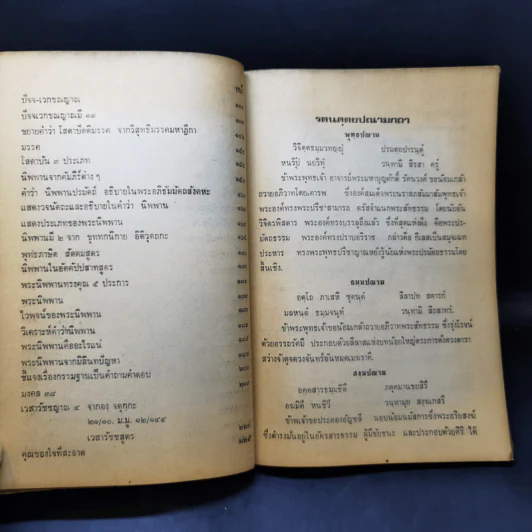 หน้า
ปัจจ-เวกขณญาณ
ปัจจเวกขณญาณมี ๑๙
ขยายคำว่า โสดาปัตติมรรค จากวิสุทธิมรรคมหาฎีกา
มรรค
โสดาบัน ๓ ประเภท
นิพพานจากคัมภีร์ต่าง ๆ
คำว่า นิพพานปรมัตถ์ อธิบายในพระอภิธัมมัตถสังคหะ
แสดงวจนัตถะและอธิบายในคำว่า นิพพาน
แสดงประเภทของพระนิพพาน
นิพพานมี ๒ จาก ขุททกนิกาย อิติวุตถกะ
พุทธภาษิต สัตตมสูตร
นิพพานในอัคคัปปสาทสูตร
พระนิพพานทรงคุณ ๕ ประการ
พระนิพพาน
ไวพจน์ของพระนิพพาน
วิเคราะห์คำว่านิพพาน
พระนิพพานคืออะไรแน่
พระนิพพานจากมิลินทปัญหา
ชี้แจงเรื่องกรรมฐานเป็นคำถามคำตอบ
มงคล ๓๘
เวสารัชชญาณ ๔ จากอง. จตุกฺกะ
๒๑/๑๐. ม.มู. ๑๒/๑๔๔
เวสารัชชสูตร
คุณของใจที่สะอาด
รตนตฺตยปณามกถา
พุทฺธปณาม
วิจิตฺตธมฺมวทญฺญุํ
หนฺรีปํ นยวีทุํ วนฺทามิ สิรสา ครุํ
ข้าพระพุทธเจ้า อาจารย์พระมหาบุญศักดิ์ รัตนวงศ์ ขอน้อมเกล้า
ถวายอภิวาทโดยเคารพ ซึ่งองค์สมเด็จพระนราสภสัมมาสัมพุทธเจ้า
พระองค์ทรงพระปรีชาสามารถ ตรัสจำแนกพระสัทธรรม โดยนัยอัน
วิจิตรพิสดาร พระองค์ทรงบรรลุถึงแล้ว ซึ่งที่สุดแห่งฝั่ง คือพระปร-
มัตถธรรม พระองค์ทรงปราบอริราช กล่าวคือ กิเลสเป็นสมุฉเฉท
ประหาร ทรงพระพุทธปรีชาญาณหยั่งรู้นัยแห่งพระปรมัตถธรรมโดย
สิ้นเชิง.
ธมฺมปณาม
ข้าพระพุทธเจ้าขอน้อมเกล้าถวายอภิวาทพระสัทธรรม ซึ่งรุ่งโรจน์
ด้วยอรรถรัศมี ประกอบด้วยลีลาแห่งบทน้อยใหญ่ตระการดังดวงดารา
สว่างจ้าดุจดวงจันทร์อันหมดเมฆราคี.
สงฺฆปณาม
ข้าพเจ้าขอประคองอัญชลี นอบน้อมนมัสการซึ่งพระอริยสงฆ์
ซึ่งดำรงมั่นอยู่ในอัครสารธรรม ผู้มีชัยชนะ และประกอบด้วยศิริ ได้